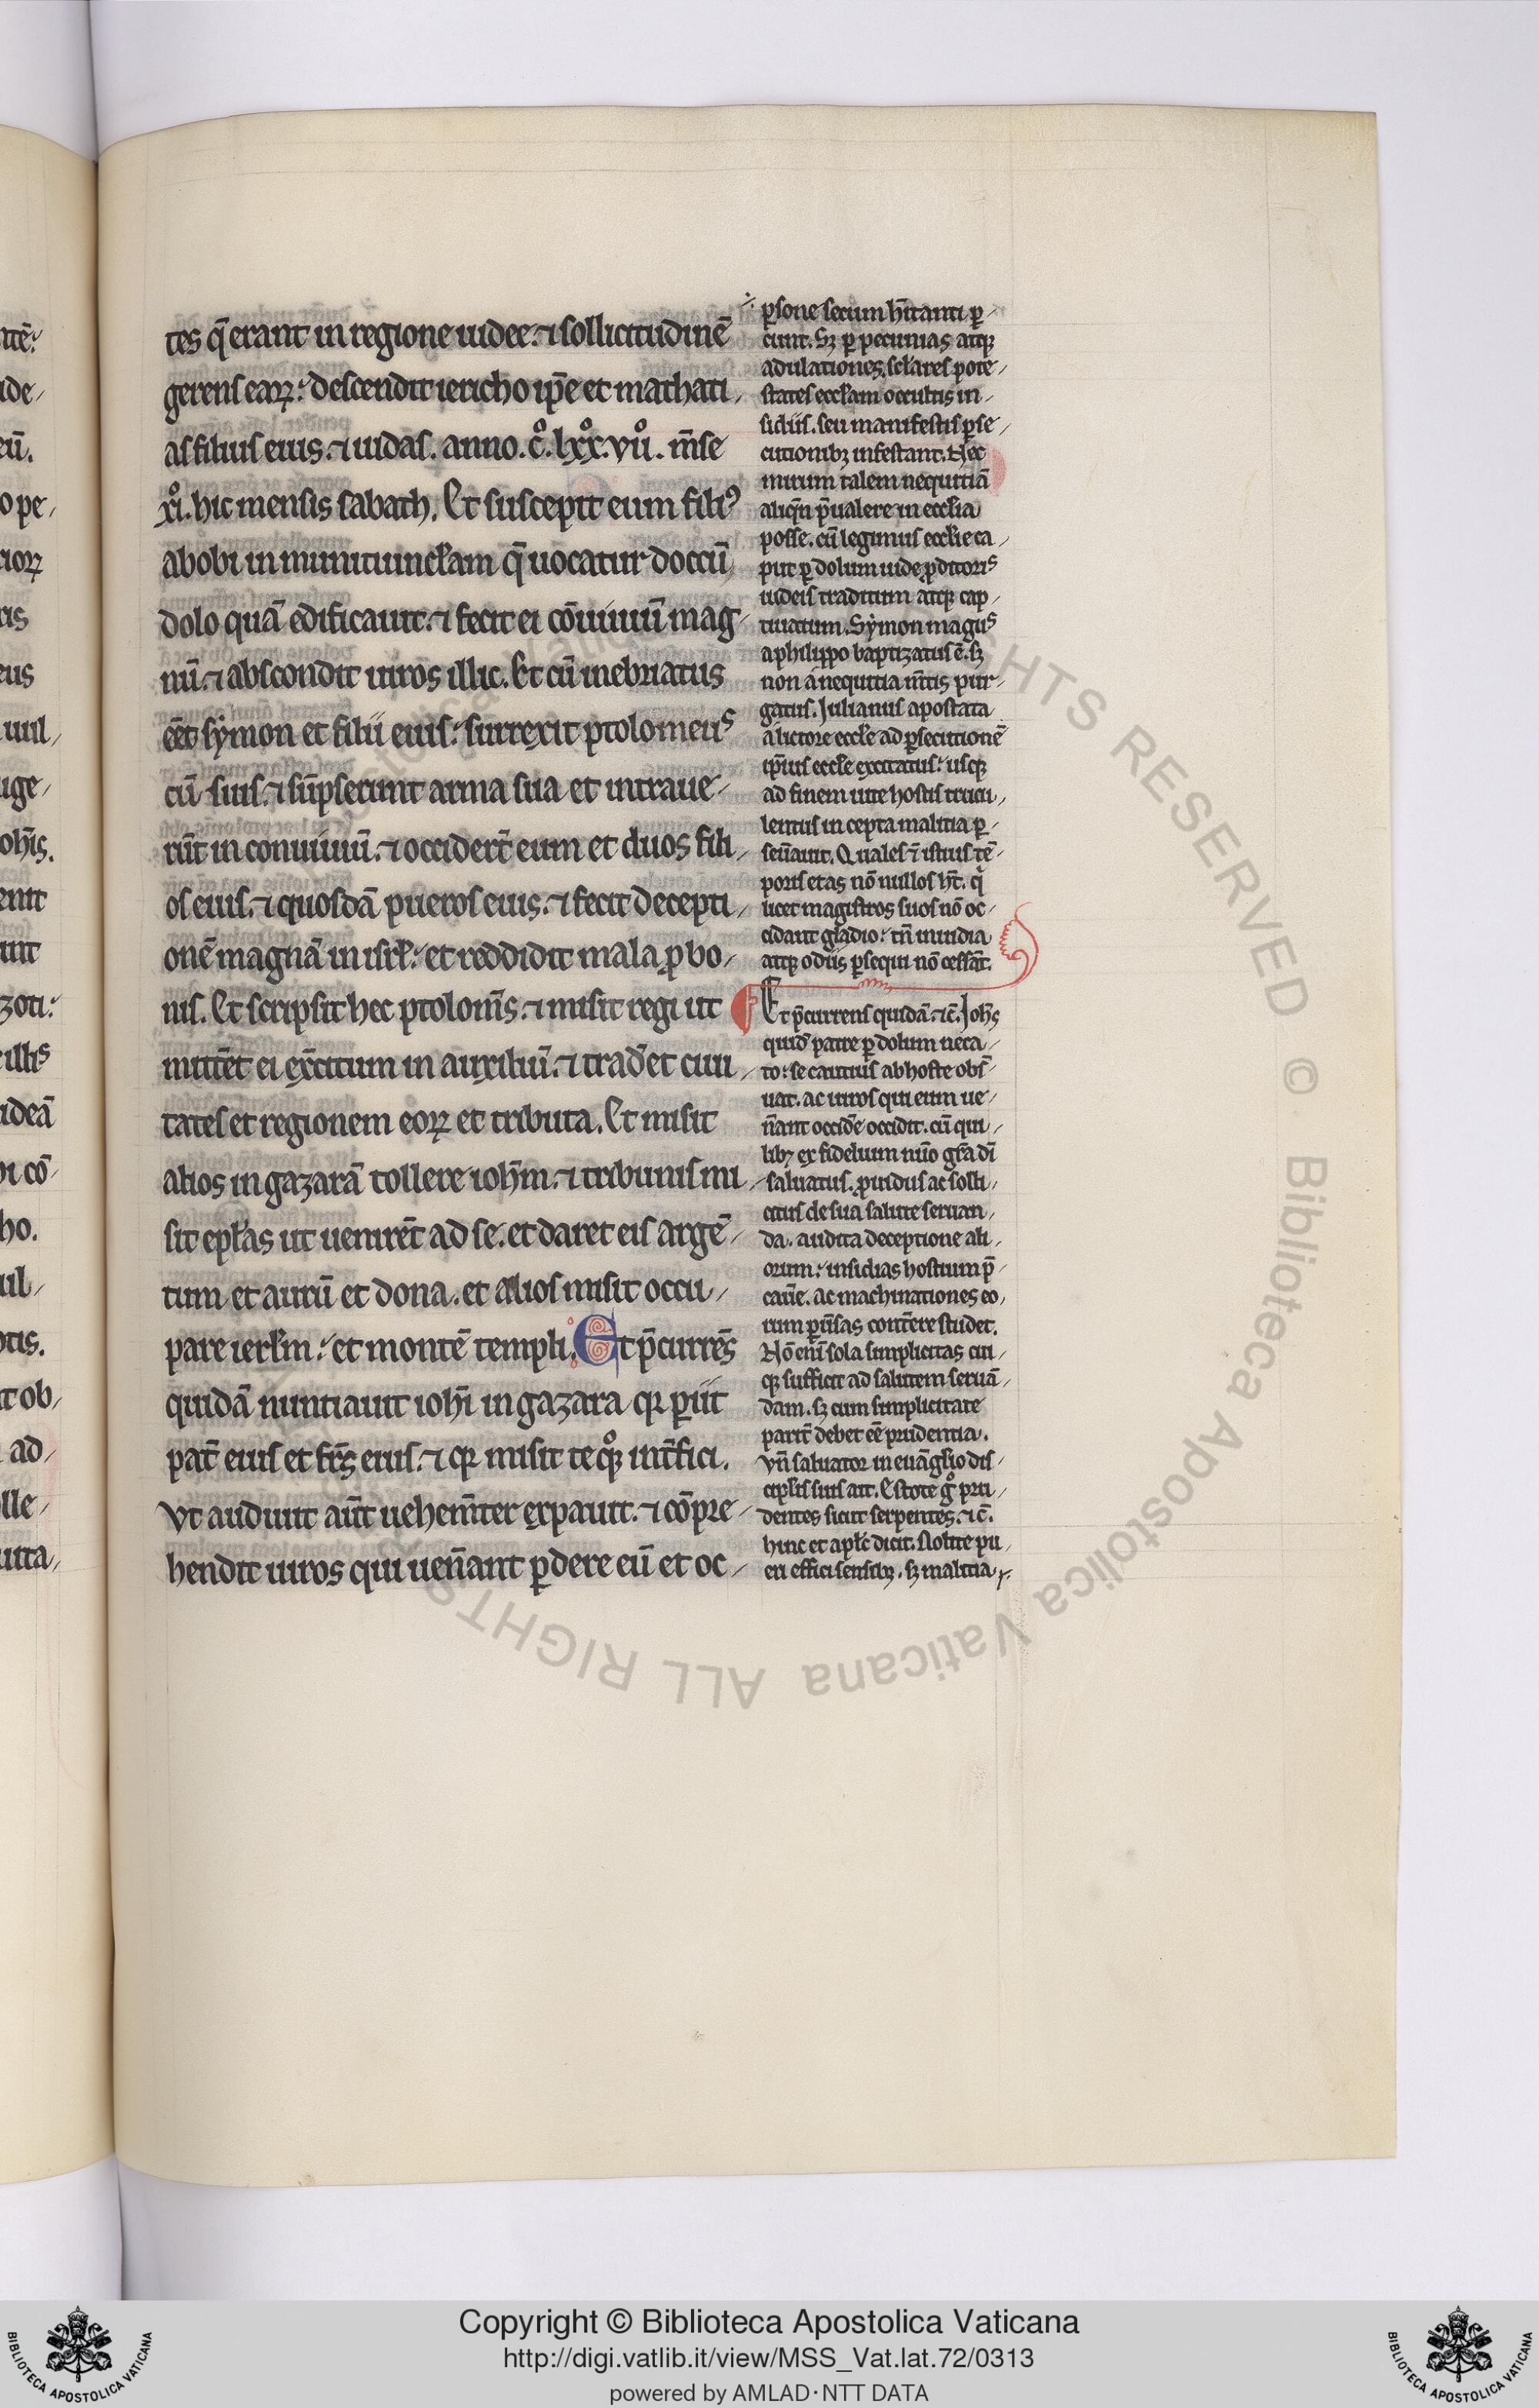 tes q̄ erant in regione iudee. ⁊ sollicitudinē
gerens earꝝ. descendit iericho ip̄e et mathati
as filius eius. ⁊ iudas. anno. c.̊ lxx.̊ vii.̊ m̄se
xi.̊ hic mensis sabath. Et suscepit eum filiꝰ
abobi in munitiuncłam q̄ uocatur doccū
dolo quā edificauit. ⁊ fecit ei cōuiuiū mag
nū. ⁊ abscondit uiros illic. Et cū inebriatus
eēt symon et filii eius. surrexit ptolomeuˢ
cū suis. ⁊ sūpserunt arma sua et intraue
rūt in conuiuiū. ⁊ occidert̄ eum et duos fili
os eius. ⁊ quosdā pueros eius. ⁊ fecit decepti
onē magnā in isrł. et reddidit mala ꝓ bo
nis. Et scripsit hec ptolom̄s. ⁊ misit regi ut
mittēt ei exc̄itum in auxiliū. ⁊ trad̄et ciui
tates et regionem eoꝝ et tributa. Et misit
alios in gazarā tollere ioh̄m. ⁊ tribunis mi
sit epłas ut uenirēt ad se. et daret eis argē
tum et aurū et dona. et alios misit occu
pare ierłm. et montē templi. Et p̄currēs
quidā nuntiauit ioh̄i in gazara qꝛ ꝑiit
pat̄ eius et fr̄s eius. ⁊ qꝛ misit te qꝫ int̄fici.
Vt audiuit aūt uehem̄ter expauit. ⁊ cōpre
hendit uiros qui uen̄ant ꝑdere eū et oc
ꝑsone secum h̄itanti ꝑ
ciunt. Sꝫ ꝑ pecunias atqꝫ
adulationes. sclares pote
states eccłam occultis in
sidiis. seu manifestis ꝑse
cutionibꝫ infestant. Nec
mirum talem nequitiā
aliqn̄ p̄ualere in eccłia
posse. cū legimus eccłie ca
put ꝑ dolum iude ꝓditoriˢ
iudeis traditum atqꝫ cap
tiuatum. Symon maguˢ
a philippo baptizatus ē. sꝫ
non a nequitia m̄tis pur
gatus. Julianus apostata
a lictore eccłe ad ꝑsecutionē
ip̄ius eccłe excitatus. usqꝫ
ad finem uite hostis trucu
lentus in cepta malitia ꝑ
seūauit. Quales ⁊ istius tē
poris etas nō nullos h̄t. q̇
licet magistros suos nō oc
cidant gladio. tn̄ inuidia
atqꝫ odiis ꝑsequi nō cessāt.
Et p̄currens quidā. ⁊c̄. Joh̄s
quid̄ patre ꝑ dolum neca
to. se cautius ab hoste obs̄
uat. ac uiros qui eum ue
n̄ant occid̄e occidit. cū qui
libꝫ ex fidelium nūo gr̄a dī
saluatus. ꝓuidus ac solli
citus de sua salute seruan
da. audita deceptione ali
orum. insidias hostium p̄
caūe. ac machinationes eo
rum ꝑūsas cont̄ere studet.
Nō enī sola simplicitas cui
qꝫ sufficit ad salutem seruā
dam. sꝫ cum simplicitate
parit̄ debet eē prudentia.
Vn̄ saluator in euāgłio dis
cipłis suis ait. Estote g̊ pru
dentes sicut serpentes. ⁊c̄.
hinc et apłs dicit. Nolite pu
eri effici sensibꝫ. sꝫ malitia
Copyright © Biblioteca Apostolica Vaticana
http://digi.vatlib.it/view/MSS_Vat.lat.72/0313
powered by AMLAD·NTT DATA